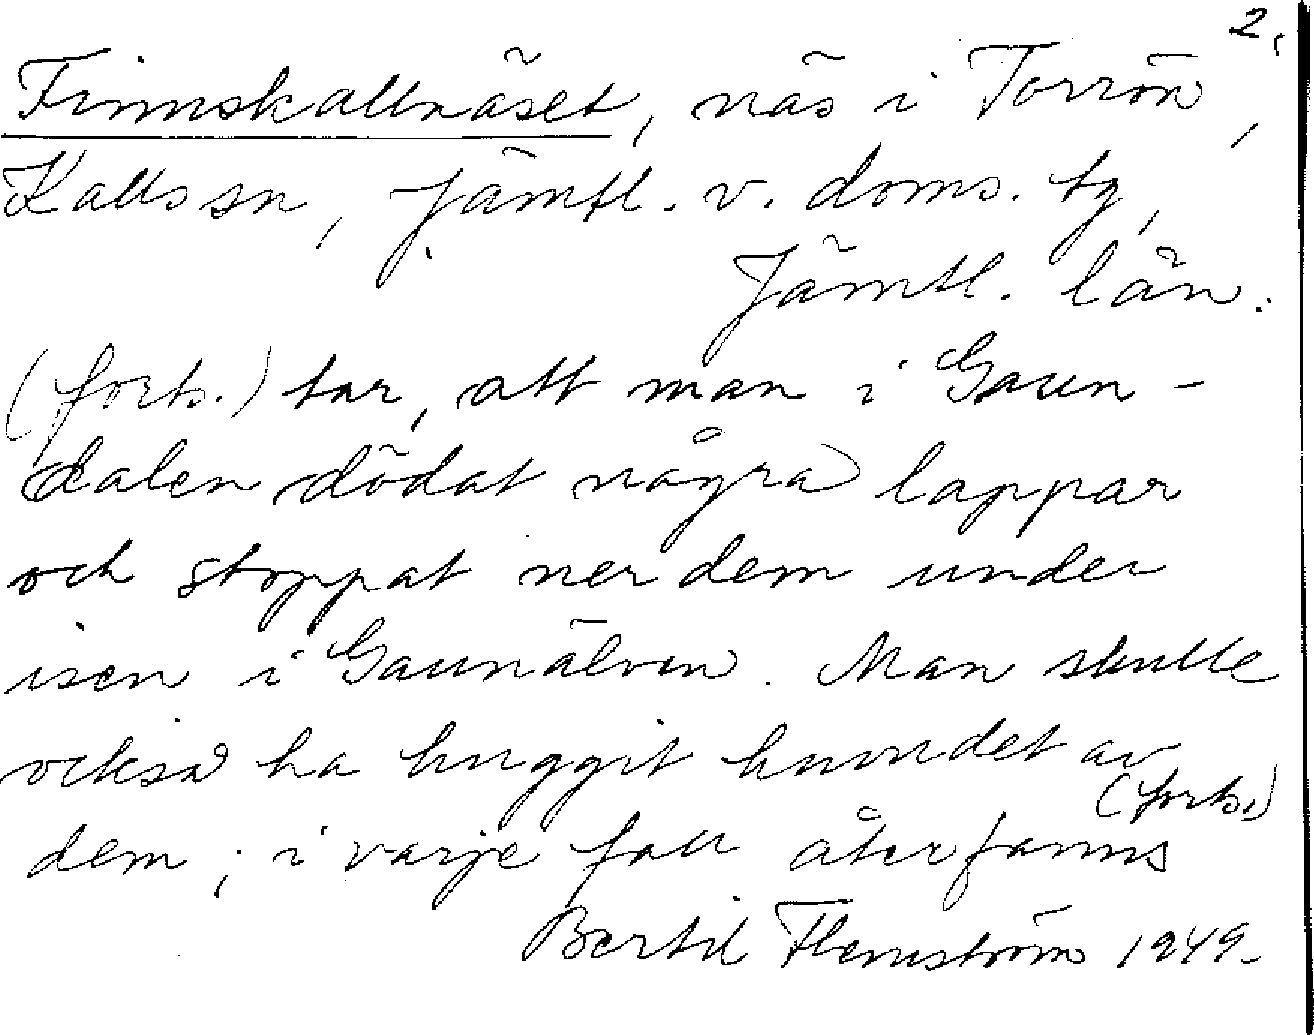 2.
Finnskallnäset, näs i Torrön,
Kalls sn, Jämtl. v. doms. tg,
Jämtl. län.
(forts.) tar, att man i Gaun-
dalen dödat några lappar
och stoppat ner dem under
isen i Gaunälven. Man skulle
också ha huggit huvudet av
dem; i varje fall återfanns
(forts.)
Bertil Flemström 1949.